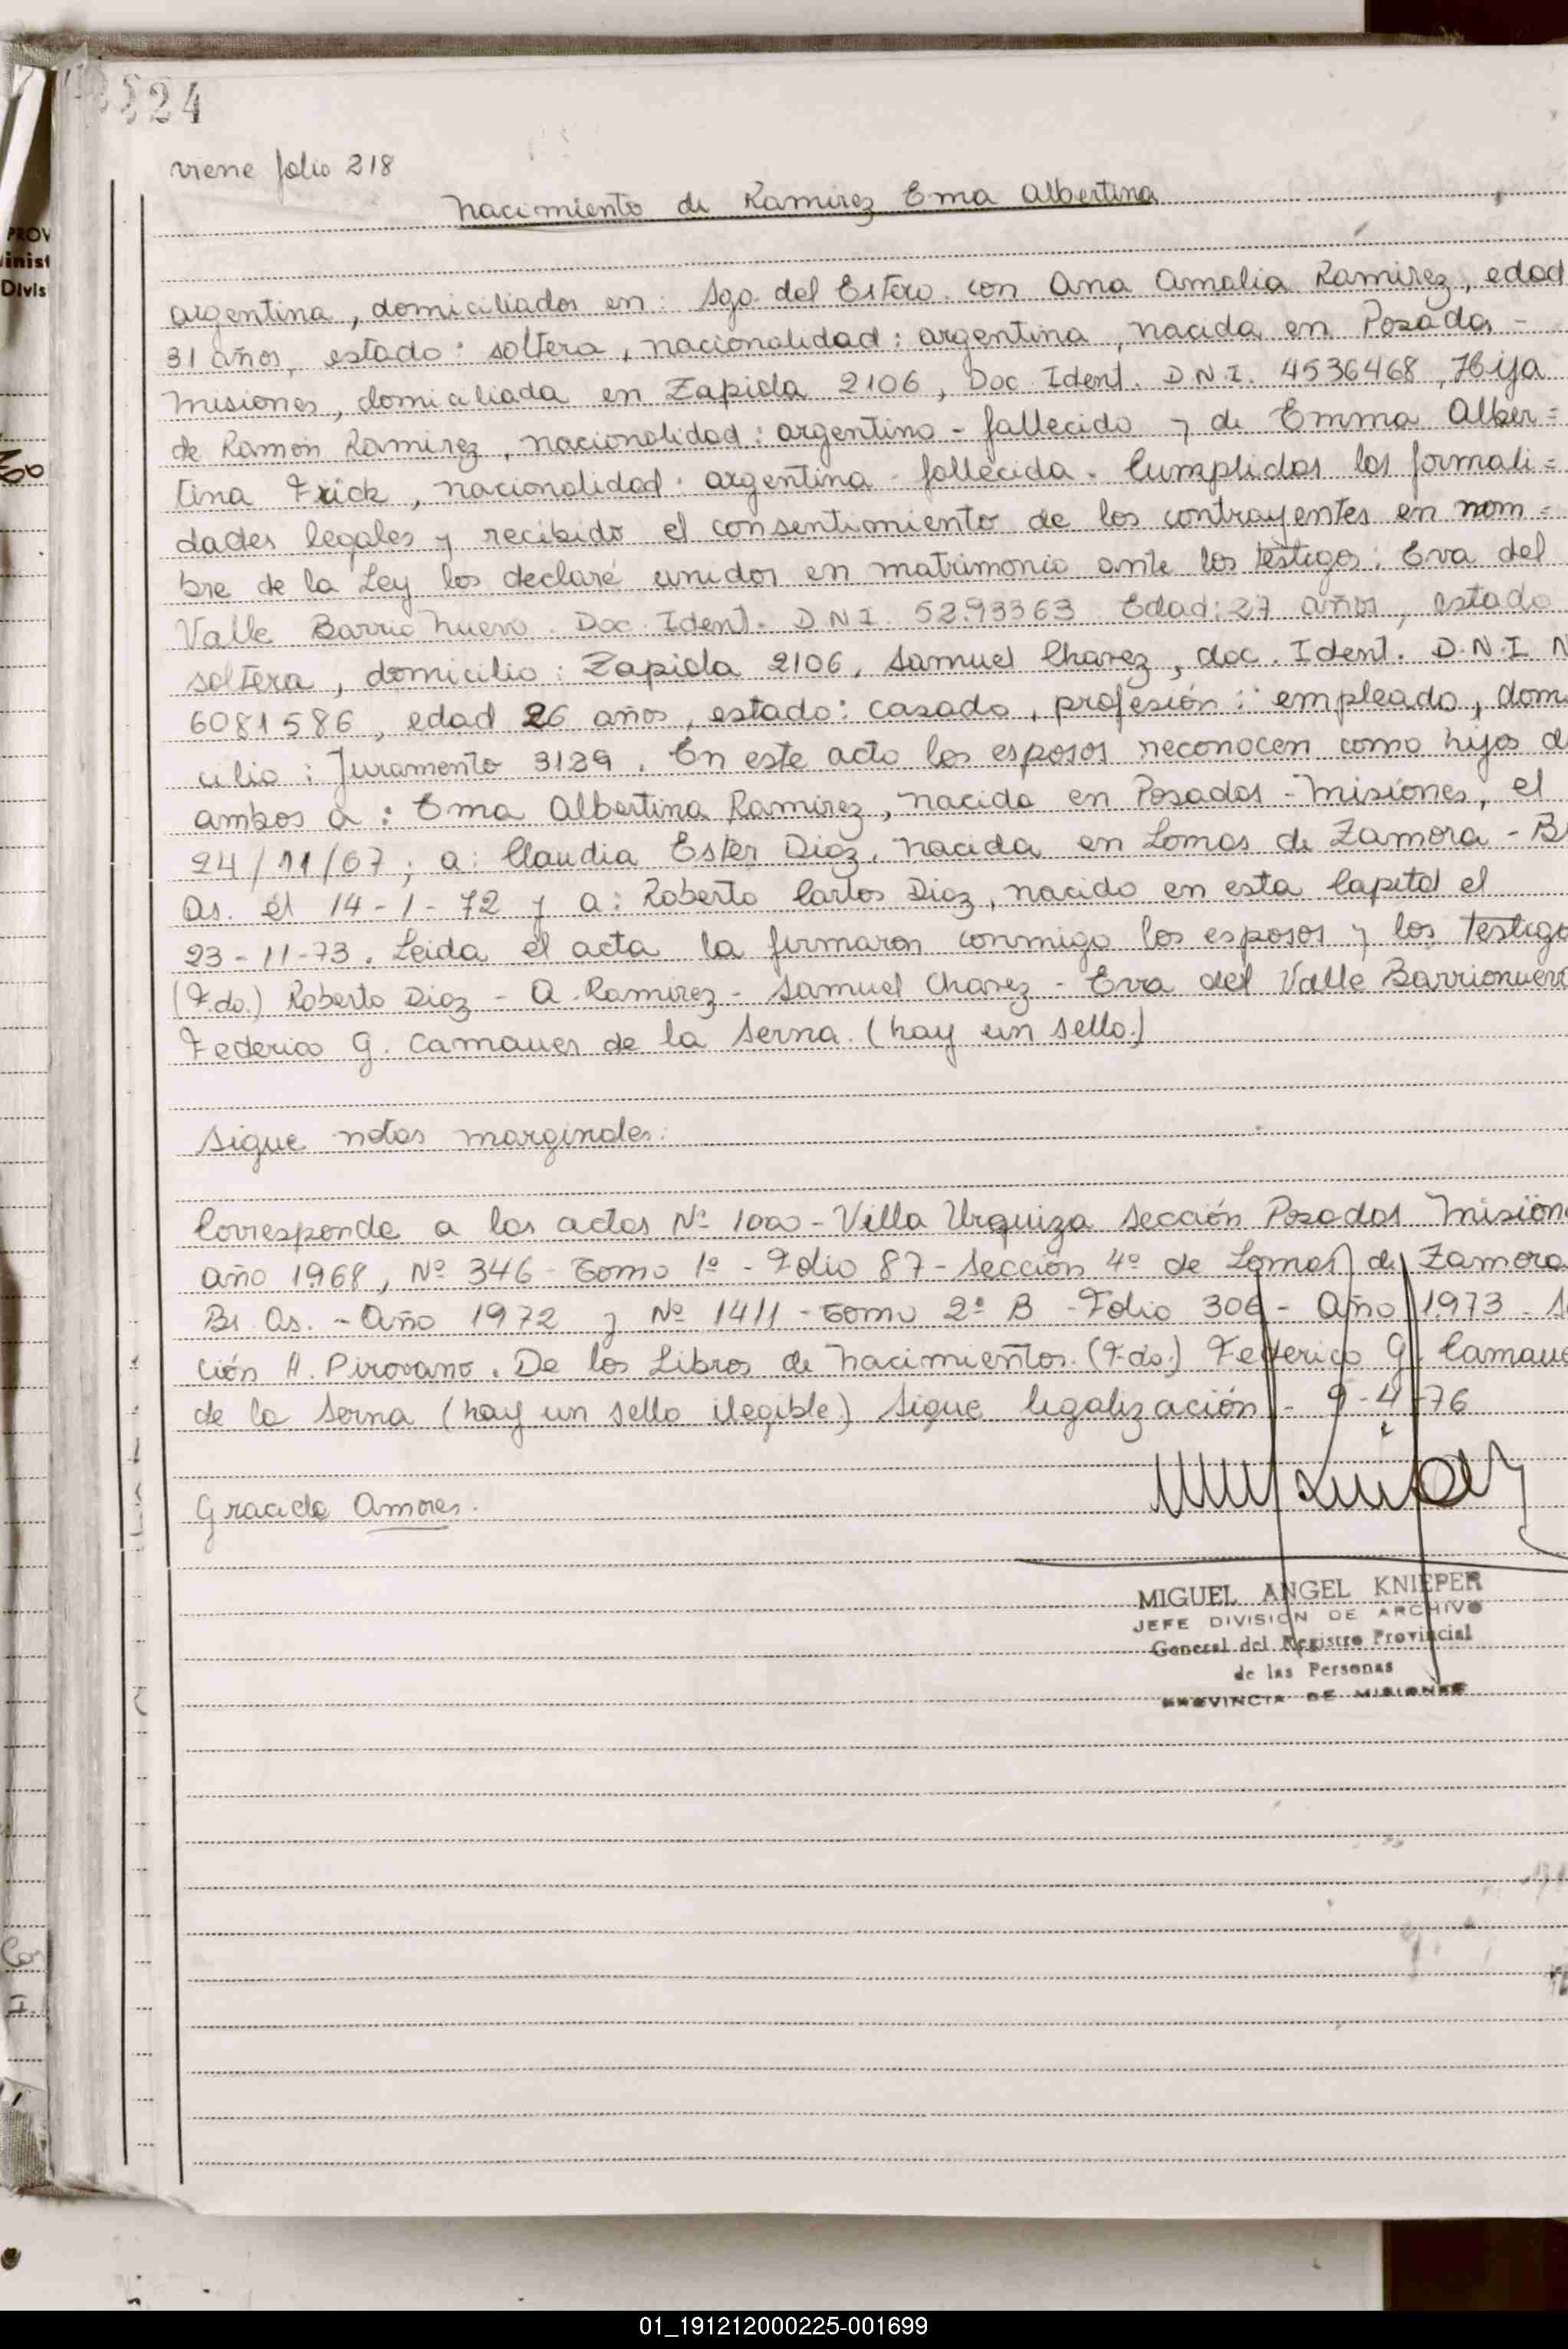 224
viene folio 218
Nacimiento de Ramirez Ema Albertina
argentina, domiciliados en: Sgo. del Estero. con Ana Amalia Ramirez, edad
31 años, estado: soltera, nacionalidad: argentina, nacida en Posadas -
Misiones, domiciliada en Zapiola 2106, Doc. Ident. D.N.I. 4536468, Hija
de Ramón Ramirez, nacionalidad: argentino - fallecido y de Emma Alber=
tina Frick, nacionalidad: argentina - fallecida. Cumplidas las formali=
dades legales y recibido el consentimiento de los contrayentes en nom=
bre de la Ley los declaré unidos en matrimonio ante los testigos: Eva del
Valle Barrio nuevo. Doc. Ident. D.N.I. 5293363 Edad: 27 años, estado
soltera, domicilio: Zapiola 2106, Samuel Chavez, doc. Ident. D.N.I. N
6081586, edad 26 años, estado: casado, profesión: empleado, domi
cilio: Juramento 3129. En este acto los esposos reconocen como hijos d
ambos a: Ema Albertina Ramirez, nacida en Posadas - Misiones, el
24/11/67; a: Claudia Ester Diaz, nacida en Lomas de Zamora - Bs
As. el 14-1-72 y a: Roberto Carlos Diaz, nacido en esta Capital el
23-11-73. Leida el acta la firmaron conmigo los esposos y los testigo
(F.do.) Roberto Diaz - A. Ramirez - Samuel Chavez - Eva del Valle Barrionuevo
Federico G. Camauer de la Serna. (hay un sello.)
Sigue notas marginales:
Corresponde a las actas Nº 100 - Villa Urquiza Sección Posadas Misione
año 1968, Nº 346 - Tomo 1º - Folio 87 - Sección 4º de Lomas de Zamora
Bs. As. - Año 1972 y Nº 1411 - Tomo 2º B - Folio 306 - Año 1973 - S
ción H. Pirovano. De los Libros de Nacimientos. (F.do.) Federico G. Camaue
de la Serna (hay un sello ilegible) Sigue legalización - 9-4-76
Graciela Amores.
MIGUEL ANGEL KNIEPER
JEFE DIVISION DE ARCHIVO
General del Registro Provincial
de las Personas
PROVINCIA DE MISIONES
01_191212000225-001699